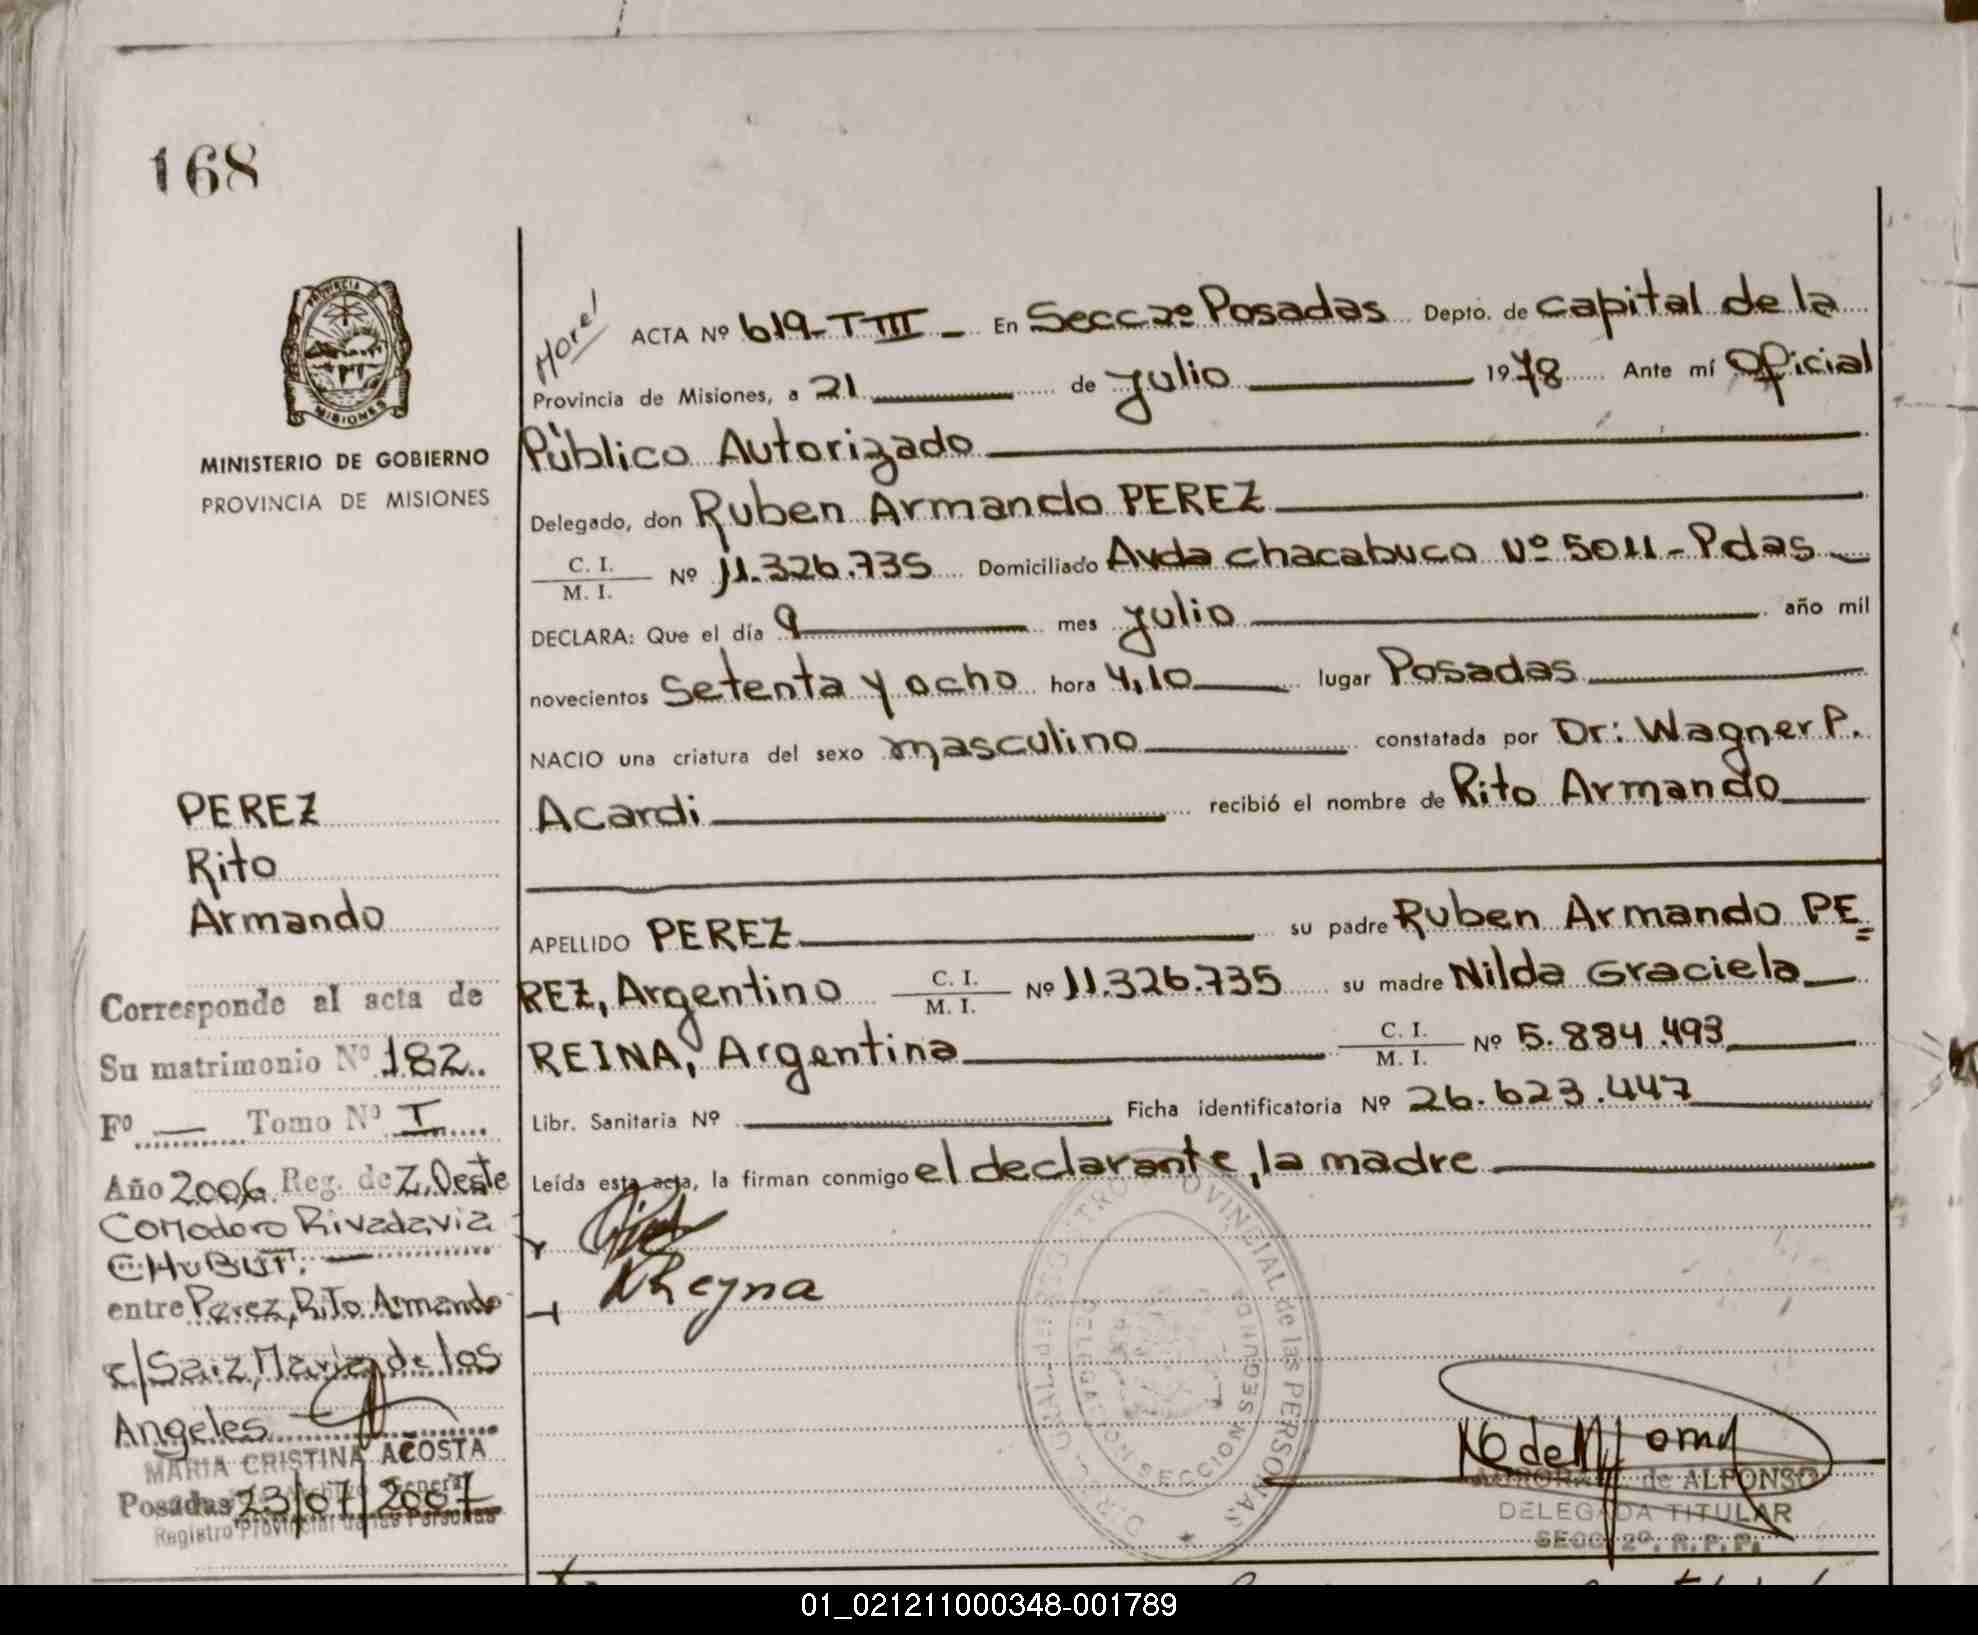 168
MINISTERIO DE GOBIERNO
PROVINCIA DE MISIONES
ACTA Nº 619-TIII- En Secc 2º Posadas Depto. de capital de la
Provincia de Misiones, a 21 de julio 1978 Ante mí Oficial
Público Autorizado
Delegado, don Ruben Armando PEREZ
C. I. / M. I. Nº 11.326.735 Domiciliado Avda chacabuco Nº 5011-Pdas
DECLARA: Que el día 9 mes julio año mil
novecientos Setenta y ocho hora 4,10 lugar Posadas
NACIO una criatura del sexo masculino constatada por Dr: Wagner P.
Acardi recibió el nombre de Rito Armando
APELLIDO PEREZ su padre Ruben Armando PE=
REZ, Argentino C. I. / M. I. Nº 11.326.735 su madre Nilda Graciela
REINA, Argentina C. I. / M. I. Nº 5.884.493
Libr. Sanitaria Nº Ficha identificatoria Nº 26.623.447
Leída esta acta, la firman conmigo el declarante, la madre
NReyna
PEREZ
Rito
Armando
Corresponde al acta de
Su matrimonio Nº 182
Fº — Tomo Nº I
Año 2006 Reg. de Z. Oeste
Comodoro Rivadavia
CHUBUT.
entre Perez, Rito Armando
c/Saiz, Maria de los
Angeles
MARIA CRISTINA ACOSTA
General
Posadas 23/07/2007
Registro Provincial de las Personas
PROVINCIAL de las PERSONAS
DELEGACION SECCION SEGUNDA
de ALFONSO
DELEGADA TITULAR
SECC. 2º. R. P. P.
01_021211000348-001789